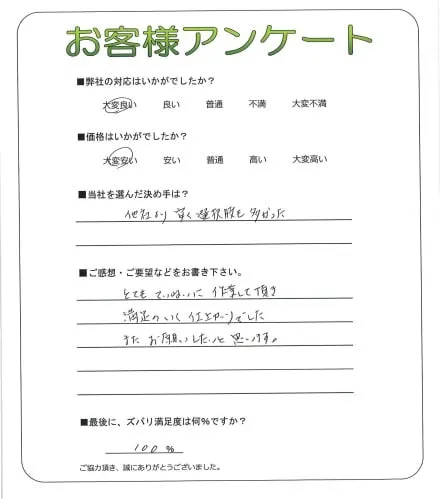 お客様アンケート
■弊社の対応はいかがでしたか？
大変良い 良い 普通 不満 大変不満
■価格はいかがでしたか？
大変安い 安い 普通 高い 大変高い
■当社を選んだ決め手は？
他社より安く選択肢も多かった
■ご感想・ご要望などをお書き下さい。
とてもていねいに作業して頂き
満足のいく仕上がりでした
またお願いしたいと思います。
■最後に、ズバリ満足度は何%ですか？
100%
ご協力頂き、誠にありがとうございました。